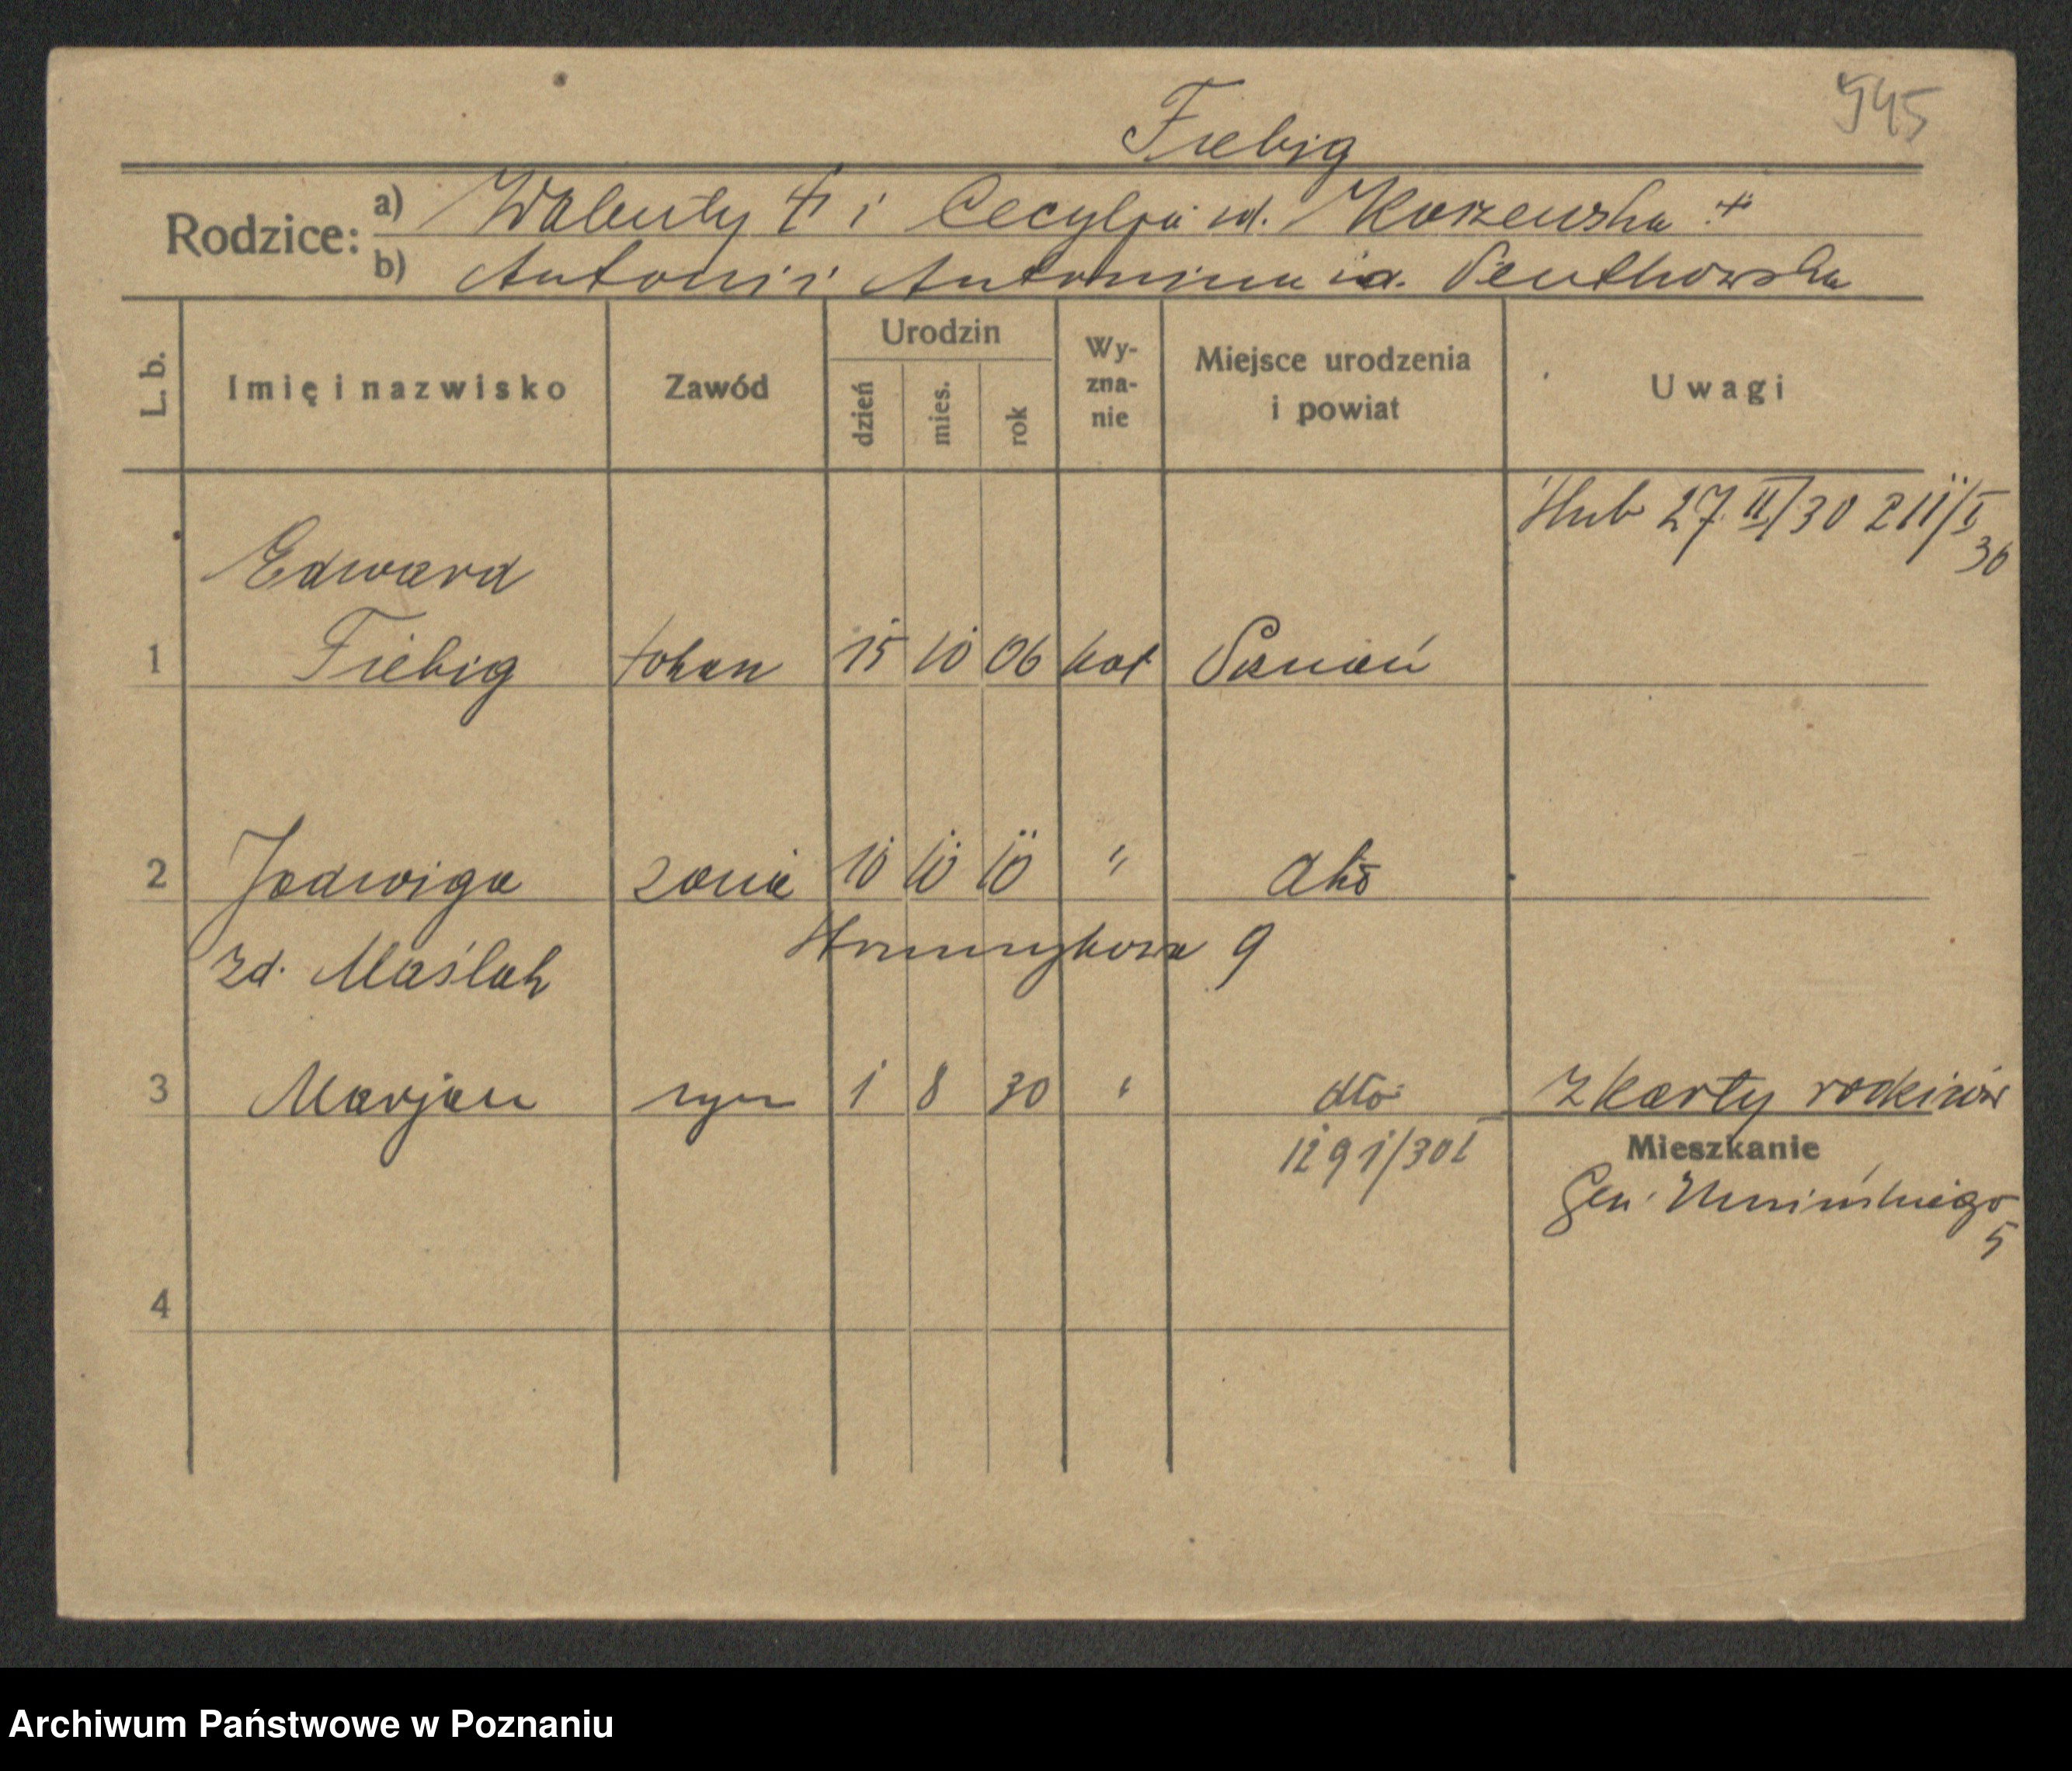 Fiebig
945
Rodzice:
a) Walenty + i Cecylja zd. Koszewska +
b) Antoni i Antonina zd. Pentkowska
L. b.
Imię i nazwisko
Zawód
Urodzin
dzień
mies.
rok
Wy-
zna-
nie
Miejsce urodzenia
i powiat
Uwagi
ślub 27 II/30 211/I
30
Edward
1 Fiebig tokarz 15 10 06 kat Poznań
2 Jadwiga żona 10 10 10 " dto
zd. Maślak 9
3 Marjan syn 1 8 30 " dto z karty rodziców
1291/30 I
Mieszkanie
Gen. Umińskiego
5
4
Archiwum Państwowe w Poznaniu